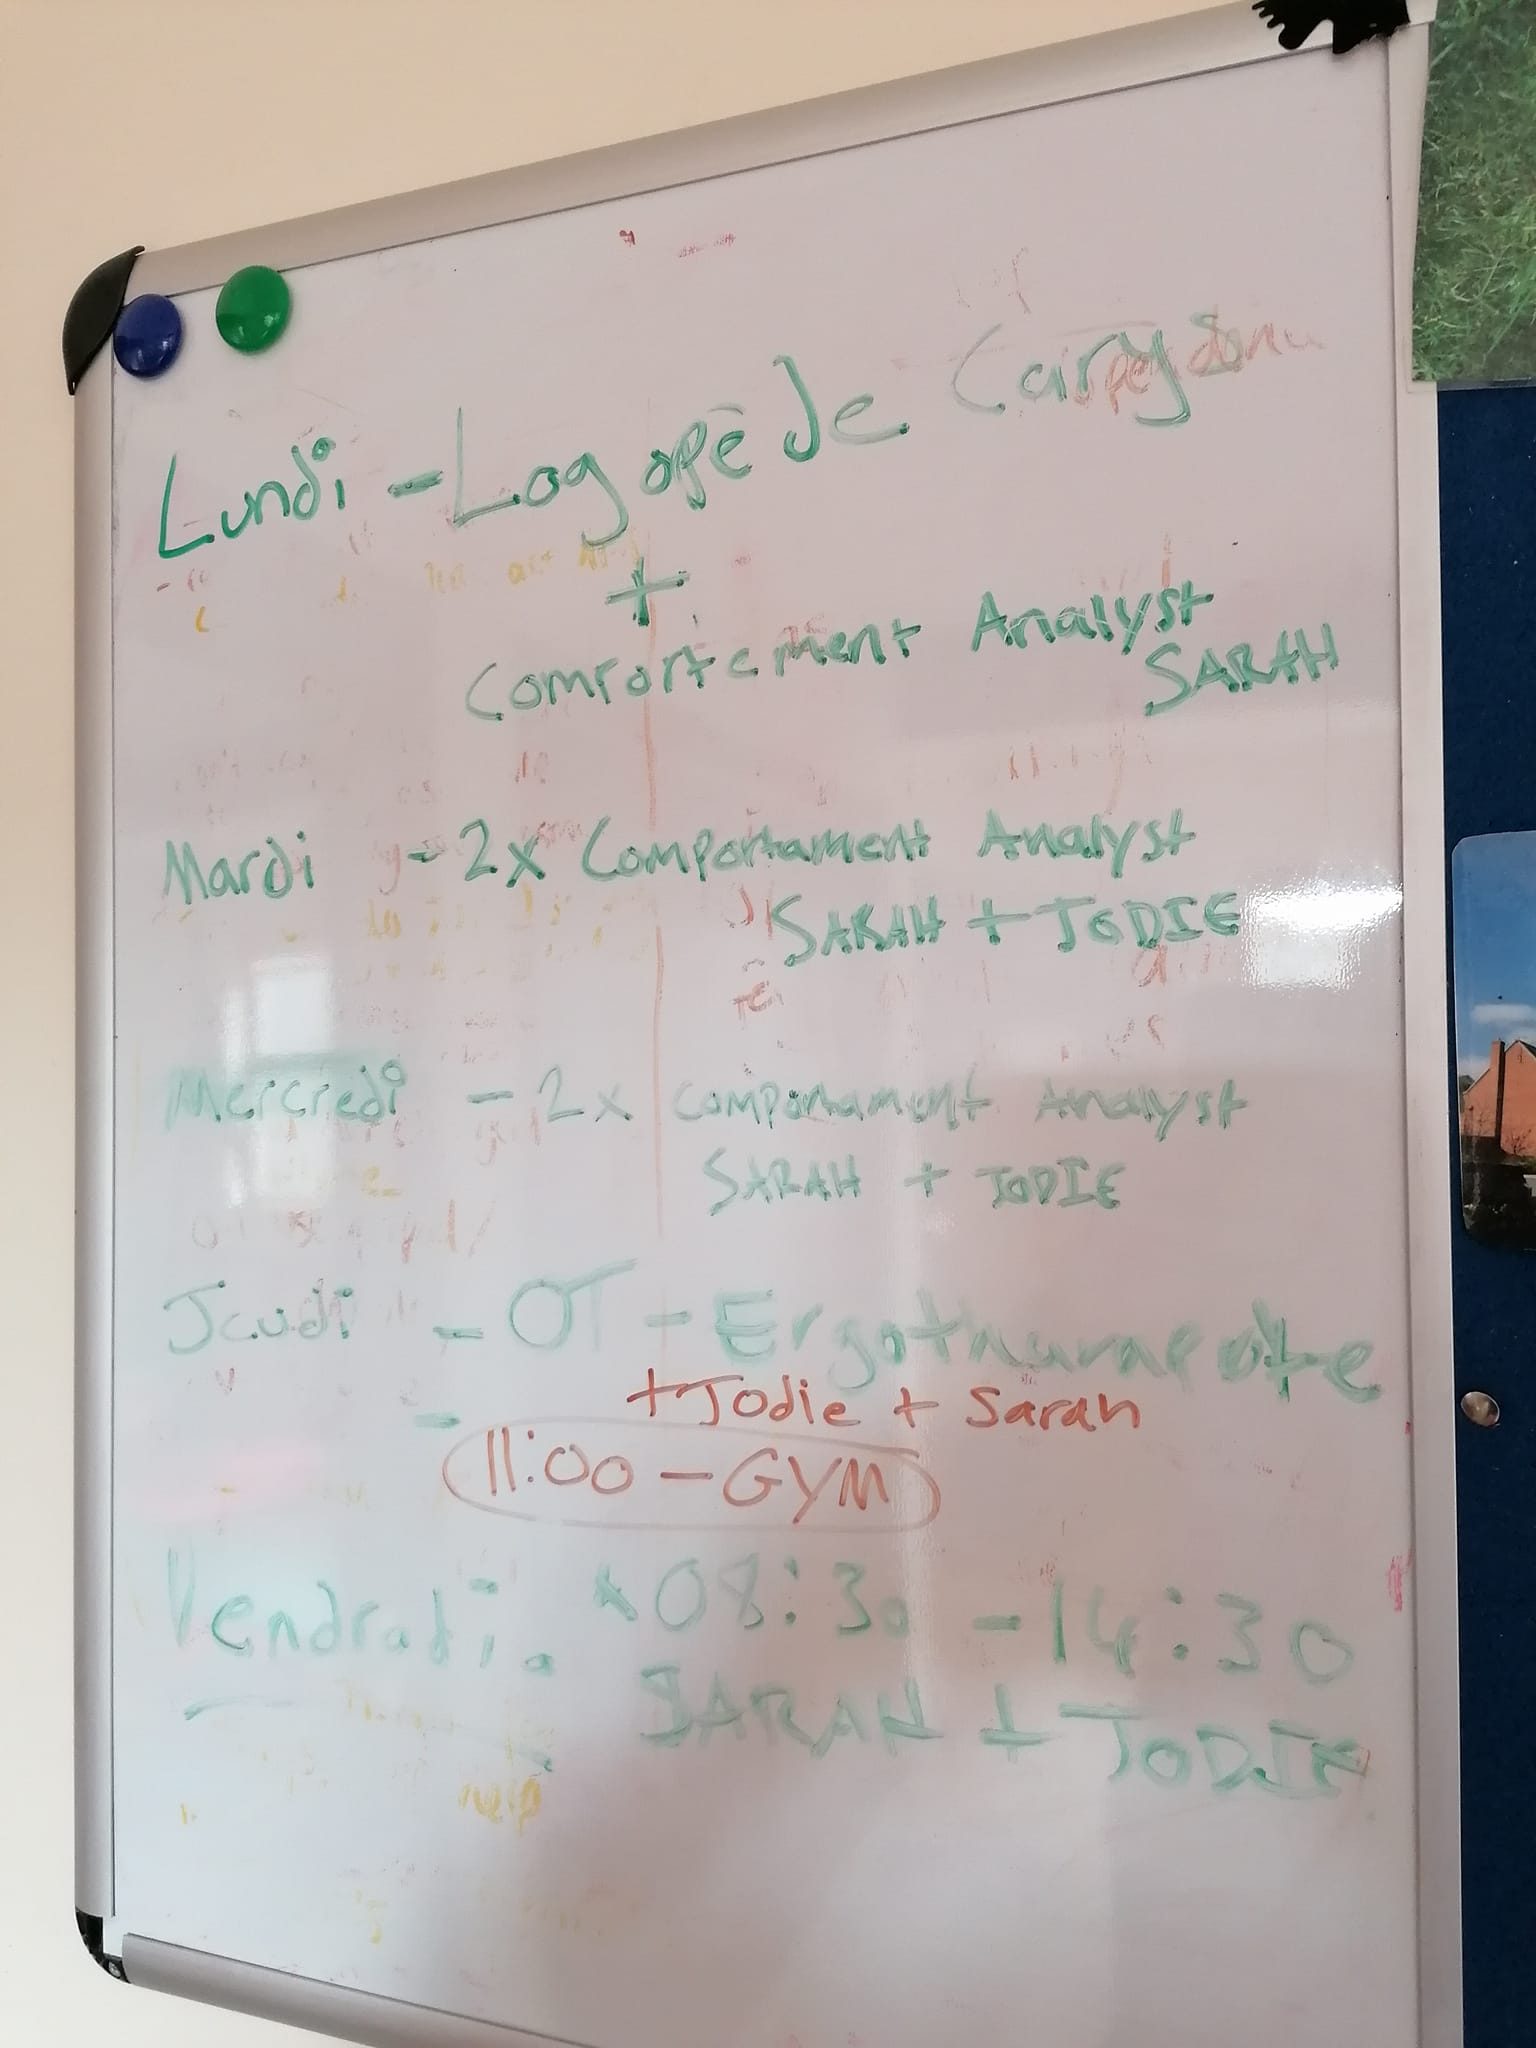 Lundi - Logopède Carys
+
Comportement Analyst
SARAH
Mardi - 2x Comportament Analyst
SARAH + JODIE
Mercredi - 2x Comportament Analyst
SARAH + JODIE
Jeudi - OT - 
+ Jodie + Sarah
-
11:00 - GYM
Vendradi. 08:30 - 14:30
SARAH + JODIE
help